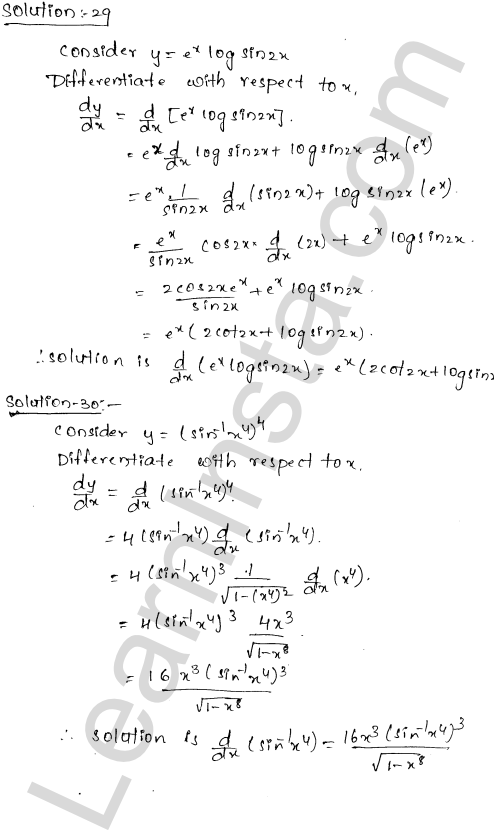 Solution:-29
Consider y = e^x log sin2x
Differentiate with respect to x,
dy/dx = d/dx [e^x log sin2x].
= e^x d/dx log sin2x + log sin2x d/dx (e^x)
= e^x 1/sin2x d/dx (sin2x) + log sin2x (e^x).
= e^x/sin2x cos2x × d/dx (2x) + e^x log sin2x.
= 2cos2xe^x/sin2x + e^x log sin2x.
= e^x (2cot2x + log sin2x).
∴ solution is d/dx (e^x log sin2x) = e^x (2cot2x + log sin2
Solution-30:-
Consider y = (sin⁻¹x⁴)⁴
Differentiate with respect to x,
dy/dx = d/dx (sin⁻¹x⁴)⁴.
= 4 (sin⁻¹x⁴) d/dx (sin⁻¹x⁴).
= 4 (sin⁻¹x⁴)³ 1/√1-(x⁴)² d/dx (x⁴).
= 4 (sin⁻¹x⁴)³ 4x³/√1-x⁸
= 16 x³ (sin⁻¹x⁴)³/√1-x⁸
∴ solution is d/dx (sin⁻¹x⁴) = 16x³ (sin⁻¹x⁴)³/√1-x⁸
LearnInsta.com